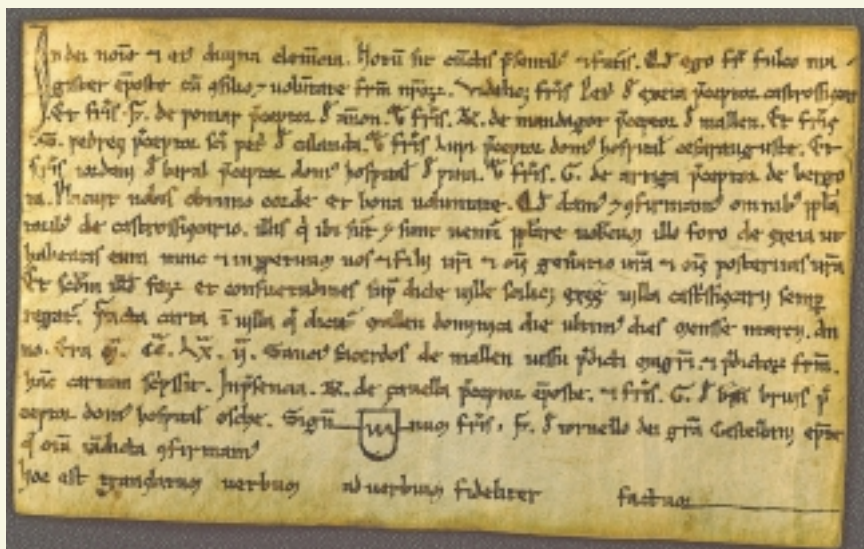 In dei noie et eius diuina clemencia. Notum sit cunctis psentib et futuris. Qd ego fr fulco ma-
gister eposte cu gsilio, et uoluntate frm nror. Videlicet fris Lep d exeia pceptor castrossigar
Et fris. F. de pomar pceptor d anon. fris. R. de mandagot pceptor d mallen. Et fris
.G. pedreg pceptor sci petri d calanda. fris lupi pceptor dom hospital cesarauguste. Et
fris iordani d pceptor dom hospital d pina. fris. G. de artiga pceptor de bergo
ta. Placuit nobis obtimo corde et bona uoluntate. Qd dam et gfirmam omnib ppla
torib de castrossigario. illis q ibi sut et sunt uenturi pplare uobiscum illo foro de exeia ut
habeatis eum nunc et inperpetuum uos et filij uri et ois gen'atio ura et ois posteritas ura
Et scdm fori et consuetudines sup dicte uille scilicet exee uilla castrisigarij semp
regat. Facta carta i uilla q dicit mallen dominica die ultim dies mensse marcij. An
no. Era m. cc. lx. ij. Sancius sacerdos de mallen iussu pdicti magri. et pdictor frm.
hac cartam scripssit. In psencia. R. de pceptor eposte. et fris. G. d bruis p
ceptor dom hospital osche. Signu num fris. F. d tornello dei gra Castellani epte
q oia gfirmam
hoc est translatum uerbum ad uerbum fideliter factum